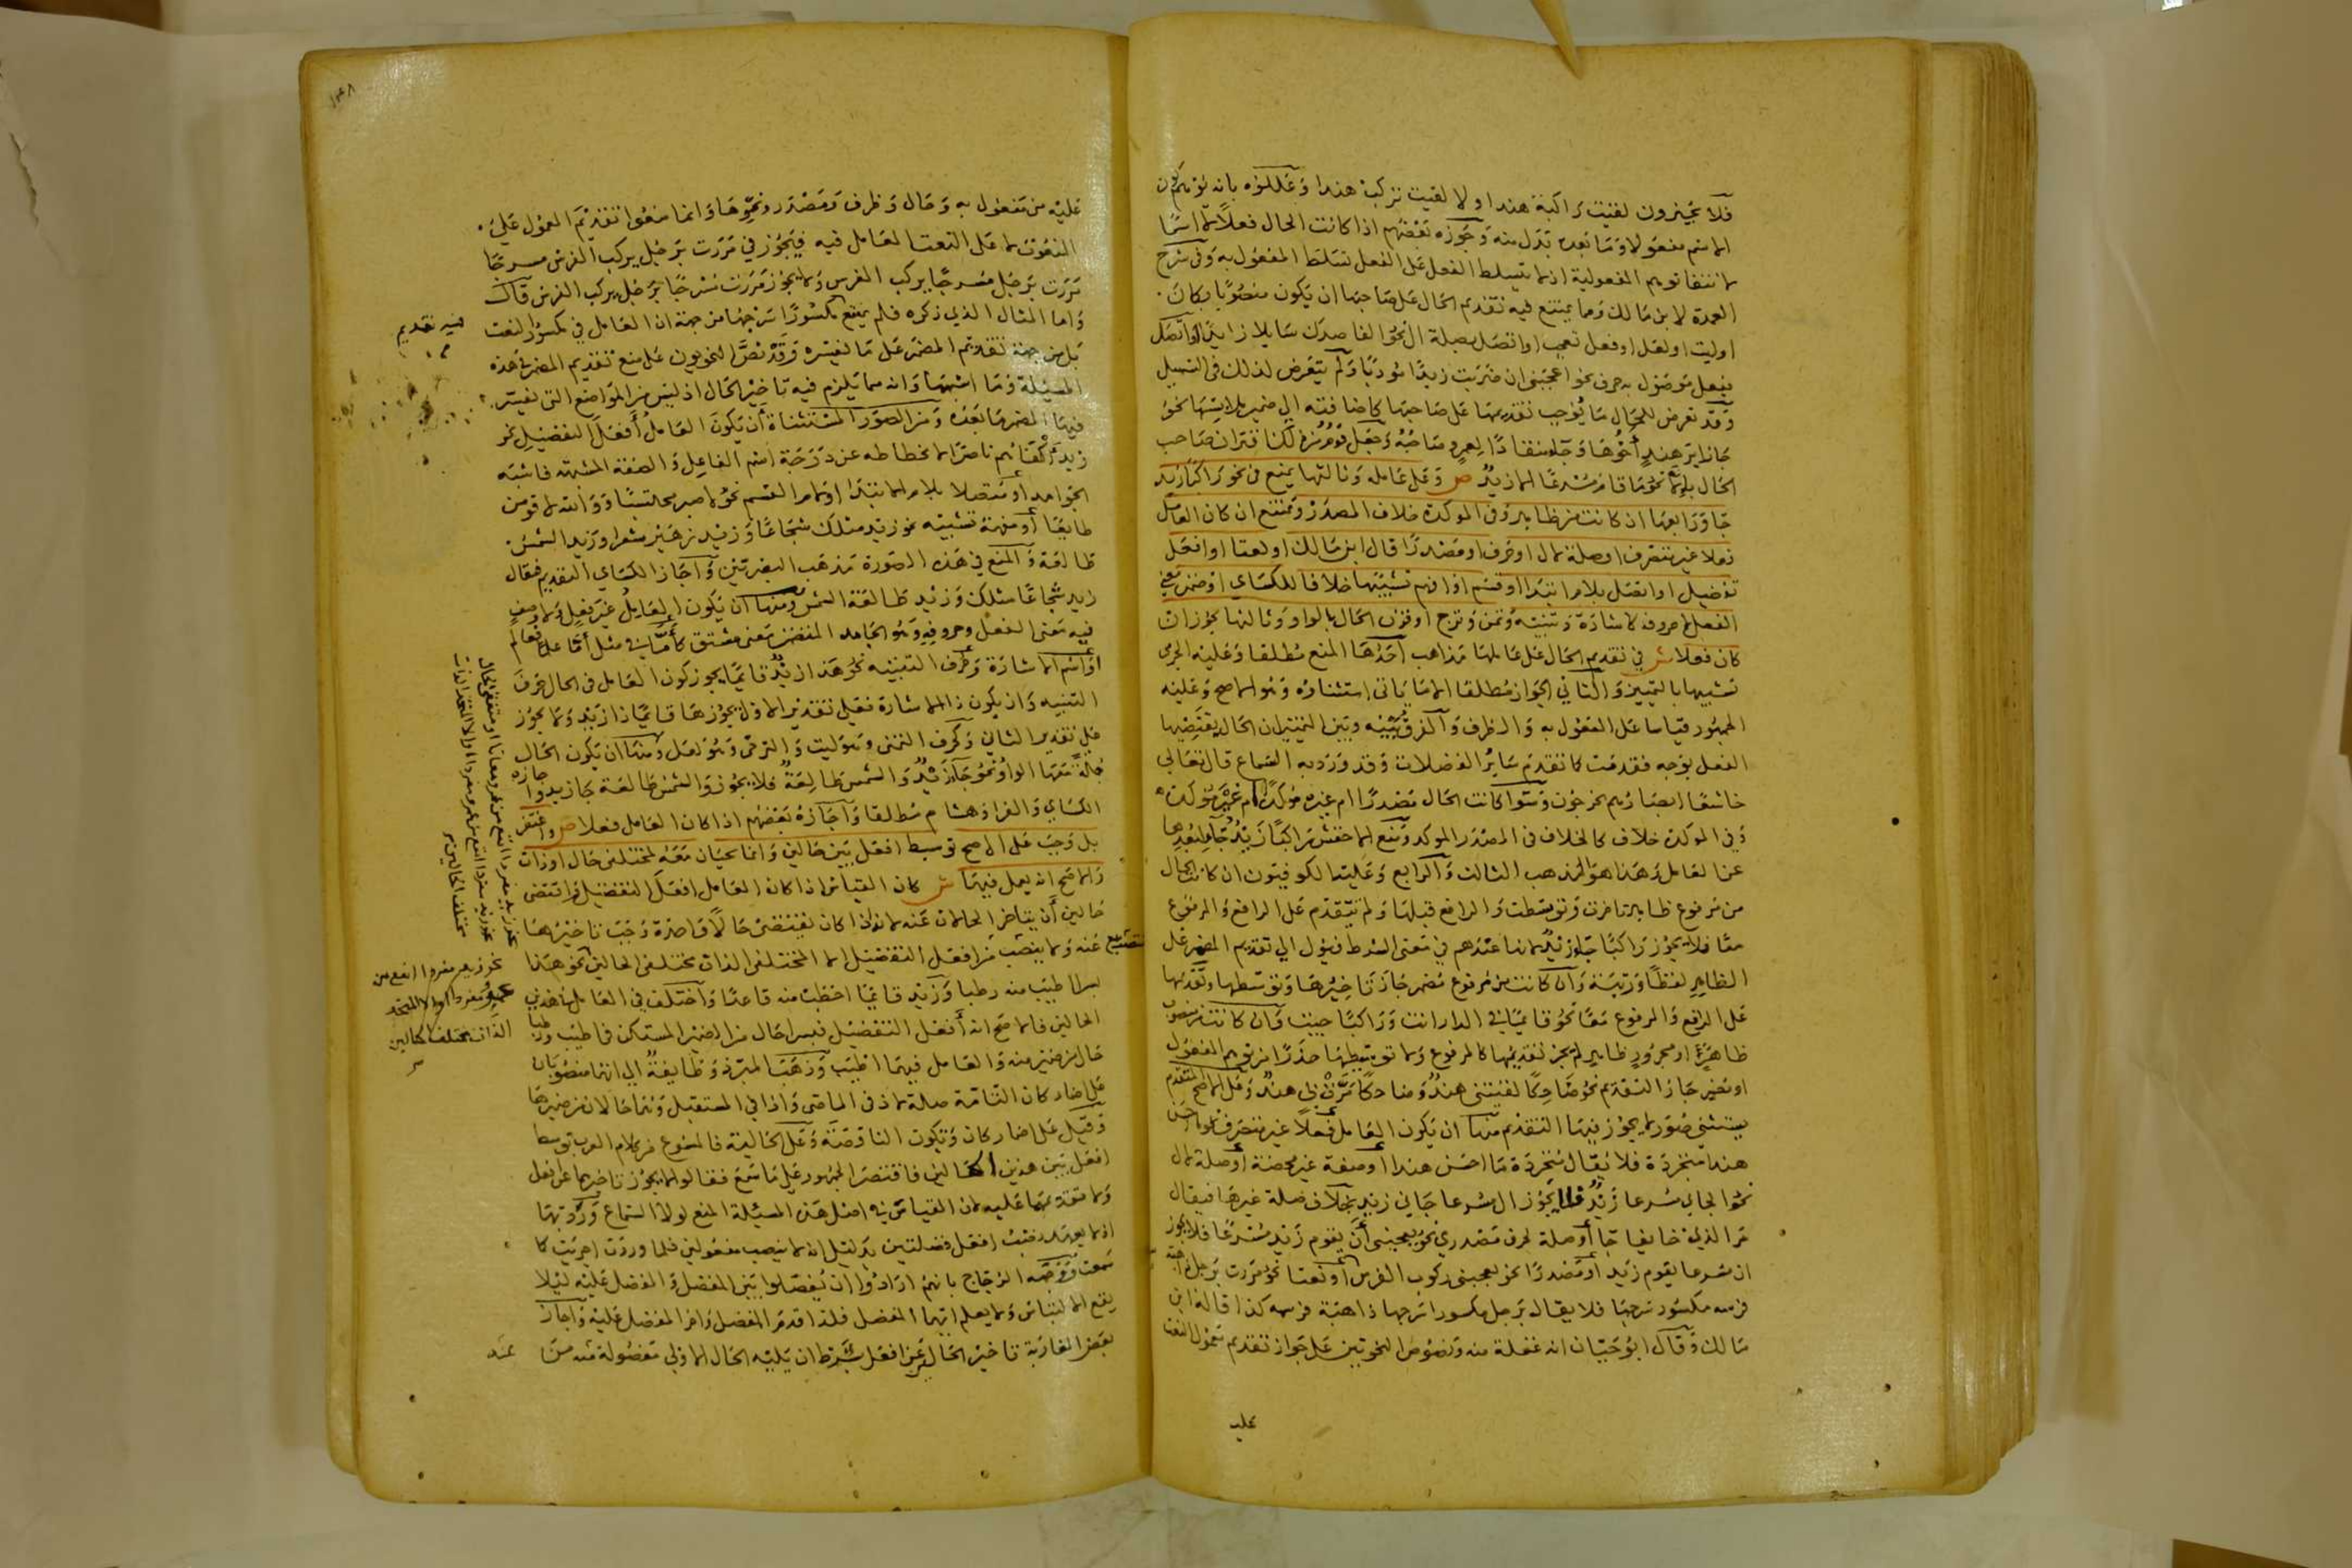 فلا يجيزون لقيت راكبة هندا ولا لقيت تركب هندا وعللوه بانه يوهم كون
الاسم مفعولا وما بعده بدل منه وجوزه بعضهم اذا كانت الحال فعلا لا اسما
لانتفا توهم المفعولية اذ لا يتسلط الفعل على الفعل تسلط المفعول به وفى شرح
العمدة لابن مالك ومما يمتنع فيه تقديم الحال على صاحبها ان يكون منصوبا بكان
او ليت او لعل او فعل تعجب او اتصل بصلة ال نحو القاصدك سايلا زيد او اتصل
بفعل موصول به حرف نحو اعجبنى ان ضربت زيدا مودبا ولم يتعرض لذلك فى التسهيل
وقد تعرض للحال ما يوجب تقديمها على صاحبها كاضافته الى ضمير ملابسها نحو
جا زاير هند اخوها وجا منقادا لعمرو صاحبه وجعل قوم منه لكنا اقتران صاحب
الحال بالا نحو ما قام مسرعا الا زيد ص وعلى عامله وثالثها يمنع فى نحو راكبا زيد
جا ورابعها ان كانت من ظاهر وفى الموكدة خلاف المصدر ويمتنع ان كان العامل
فعلا غير متصرف او صلة لال او حرف او مصدرا قال ابن مالك او نعتا او افعل
تفضيل او اتصل بلام ابتدا او قسم او افهم تشبيها خلافا للكساى او ضمن معنى
الفعل لا حروفه كاشارة وتنبيه وتمن وترج او قرن الحال بالواو وثالثها يجوز ان
كان فعلا ش فى تقديم الحال على عاملها مذاهب احدها المنع مطلقا وعليه الجرمى
تشبيها بالتمييز والثانى الجواز مطلقا الا ما ياتى استثناوه وهو الاصح وعليه
الجمهور قياسا على المفعول به والظرف والفرق بينه وبين التمييز ان الحال يقتضيها
الفعل بوجه فقدمت كما تقدم ساير الفضلات وقد ورد به السماع قال تعالى
خاشعا ابصارهم يخرجون وسوا كانت الحال مصدرا ام غيره موكدة ام غير موكدة
وفى الموكدة خلاف كالخلاف فى المصدر الموكد ومنع الاخفش راكبا زيد جا لبعدها
عن العامل وهذا هو المذهب الثالث والرابع وعليه الكوفيون ان كانت الحال
من مرفوع ظاهر تاخرت وتوسطت والرافع قبلها ولم تتقدم على الرافع والمرفوع
معا فلا يجوز راكبا جا زيد لانها عندهم فى معنى الشرط فيول الى تقديم المضمر على
الظاهر لفظا ورتبة وان كانت من مرفوع مضمر جاز تاخيرها وتوسطها وتقدمها
على الرافع والمرفوع معا نحو قايما فى الدار انت وراكبا جيت وان كانت من منصوب
ظاهر او مجرور ظاهر لم يجز تقديمها كالمرفوع ولا توسطها حذرا من توهم المفعول
او مضمر جاز التقدم نحو ضاحكا لقيتنى هند وضاحكا مرت بى هند وعلى الاصح المتقدم
يستثنى صور لا يجوز فيها التقديم منها ان يكون العامل فعلا غير متصرف نحو ما احسن
هندا متجردة فلا يقال متجردة ما احسن هندا او صفة غير محضة او صلة لال
نحو الجاى مسرعا زيد فلا يجوز ال مسرعا جاى زيد بخلاف صلة غيرها فيقال
من الذى خايفا جا او صلة لحرف مصدرى نحو يعجبنى ان يقوم زيد مسرعا فلا يجوز
ان مسرعا يقوم زيد او مصدرا نحو يعجبنى ركوب الفرس او نعتا نحو مررت برجل ذاهبة
فرسه مكسور سرجها فلا يقال برجل مكسورا سرجها ذاهبة فرسه كذا قاله ابن
مالك وقال ابو حيان انه غفلة منه ونصوص النحويين على جواز تقديم معمول النعت
عليه
١٣٨
عليه من مفعول به وحال وظرف ومصدر ونحوها وانما منعوا تقديم المعمول على
المنعوت لا على النعت العامل فيه فيجوز فى مررت برجل يركب الفرس مسرجا
مررت برجل مسرجا يركب الفرس ولا يجوز مررت مسرجا برجل يركب الفرس قال
واما المثال الذى ذكره فلم يمتنع مكسورا سرجها من جهة ان العامل فى مكسور النعت
بل من جهة تقديم المضمر على ما يفسره وقد نص النحويون على منع تقديم المضمر فى هذه
فيه تقديم
المسئلة وما اشبهها وانه مما يلزم فيه تاخير الحال اذ ليس من المواضع التى يفسر
فيها المضمر ما بعده ومن الصور المستثناة ان يكون العامل افعل التفضيل نحو
زيد اكفاهم ناصرا لانحطاطه عن درجة اسم الفاعل والصفة المشبهة فاشبه
الجوامد او متصلا بلام الابتدا او لام القسم نحو لاصبر محتسبا ووالله لاقومن
طايعا او منه تشبيه نحو زيد مثلك شجاعا وزيد زهير شعرا وزيد الشمس
طالعة والمنع فى هذه الصورة مذهب البصريين واجاز الكساى التقديم فقال
زيد شجاعا مثلك وزيد طالعة الشمس ومنها ان يكون العامل غير فعل ولا وصف
فيه معنى الفعل وحروفه وهو الجامد المضمن معنى مشتق كاما فى مثل اما علما فعالم
او اسم الاشارة وحرف التنبيه نحو هذا زيد قايما يجوز كون العامل فى الحال حرف
التنبيه وان يكون ذا الاشارة فعلى تقدير الاول يجوز ها قايما ذا زيد ولا يجوز
على تقدير الثانى وكحرف التمنى وهو ليت والترجى وهو لعل ومنها ان يكون الحال
جملة معها الواو نحو جا زيد والشمس طالعة فلا يجوز والشمس طالعة جا زيد واجازه
الكساى والفرا وهشام مطلقا واجازه بعضهم اذا كان العامل فعلا ص واغتفر
بل وجب على الاصح توسط افعل بين حالين وانما يجيان معه لمختلفى حال او ذات
والاصح انه يعمل فيهما ش كان القياس اذا كان العامل افعل التفضيل واقتضى
حالين ان يتاخر الحالان عنه لانه اذا كان يقتضى حالا واحدة وجب تاخيرها
عنه ولا ينصب من افعل التفضيل الا المختلفى الذات مختلفى الحالين نحو هذا
بسرا اطيب منه رطبا وزيد قايما اخطب منه قاعدا واختلف فى العامل فى هذين
الحالين فالاصح انه افعل التفضيل فبسرا حال من الضمير المستكن فى اطيب ورطبا
حال من ضمير منه والعامل فيهما اطيب وذهب المبرد وطايفة الى انهما منصوبان
على اضمار كان التامة صلة لاذ فى الماضى واذا فى المستقبل وهما حالان من ضميرها
وقيل على اضمار كان ويكون الناقصة وعلى الحالية فالمسموع من كلام العرب توسط
افعل بين هذين الحالين فاقتصر الجمهور على ما سمع فقالوا لا يجوز تاخيرهما عن افعل
ولا تقديمهما عليه لان القياس فى اصل هذه المسئلة المنع لولا السماع ورد بها
اذ لا يعهد نصب افعل فضلتين بدليل انه لا ينصب مفعولين فلما وردت اجريت كما
سمعت ووجه الزجاج بانهم ارادوا ان يفصلوا بين المفضل والمفضل عليه ليلا
يقع الالتباس ولا يعلم ايهما المفضل فلذا قدم المفضل واخر المفضل عليه واجاز
بعض المغاربة تاخير الحالين عن افعل بشرط ان يليه الحال الاولى مفصولة منه من
نحو زيد مفردا انفع من
عمرو مفردا او لا المتحد
الذات مختلف الحالين